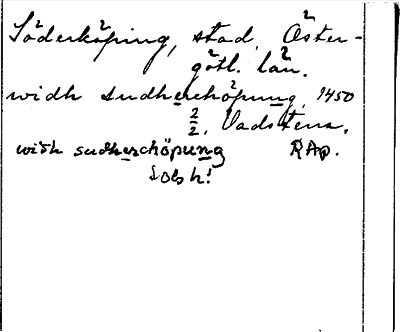 Söderköping, stad, Öster-
götl. län.
widh sudherchöpung, 1450
2/2, Vadstena,
widh sudherchöpung RAp.
Dobs h!